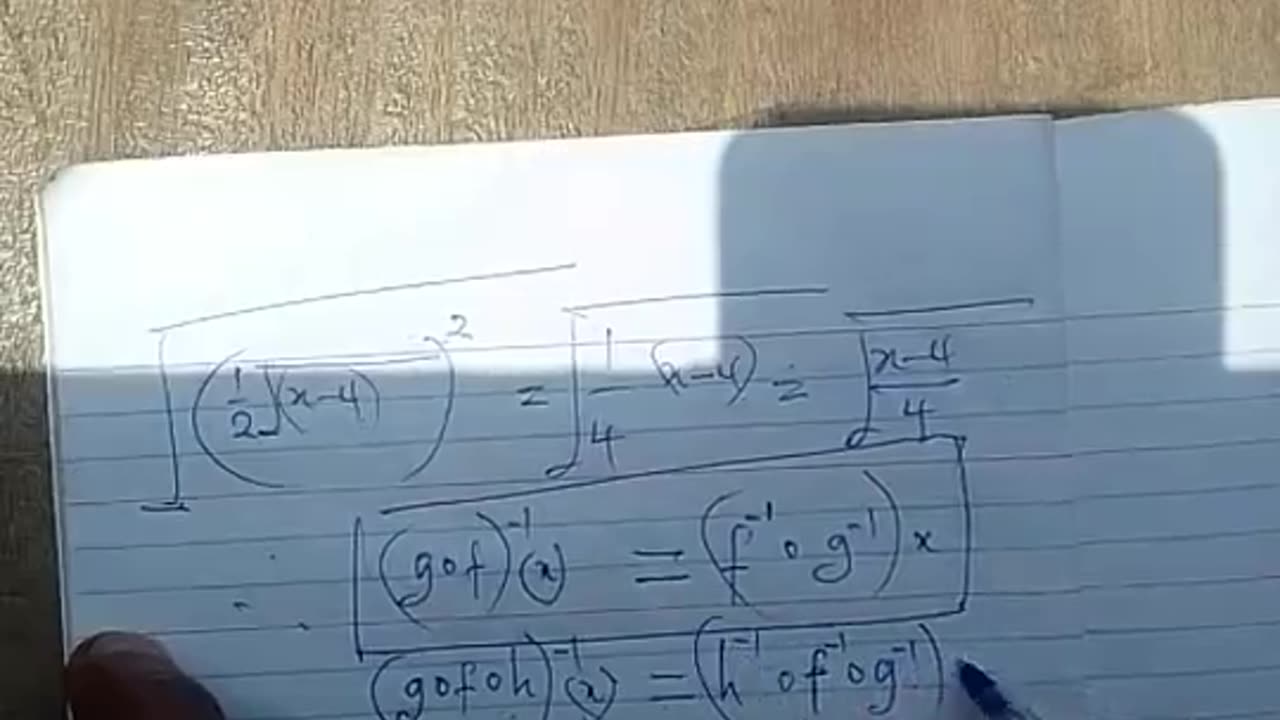 √((1/2 √(x-4))²) = √(1/4 (x-4)) = √((x-4)/4)
∴ (gof)⁻¹(x) = (f⁻¹og⁻¹)x
(gofoh)⁻¹(x) = (h⁻¹of⁻¹og⁻¹)